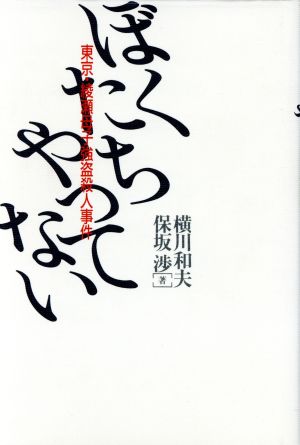 ぼくたち
やってない
東京・綾瀬母子強盗殺人事件
横川和夫
保坂渉[著]